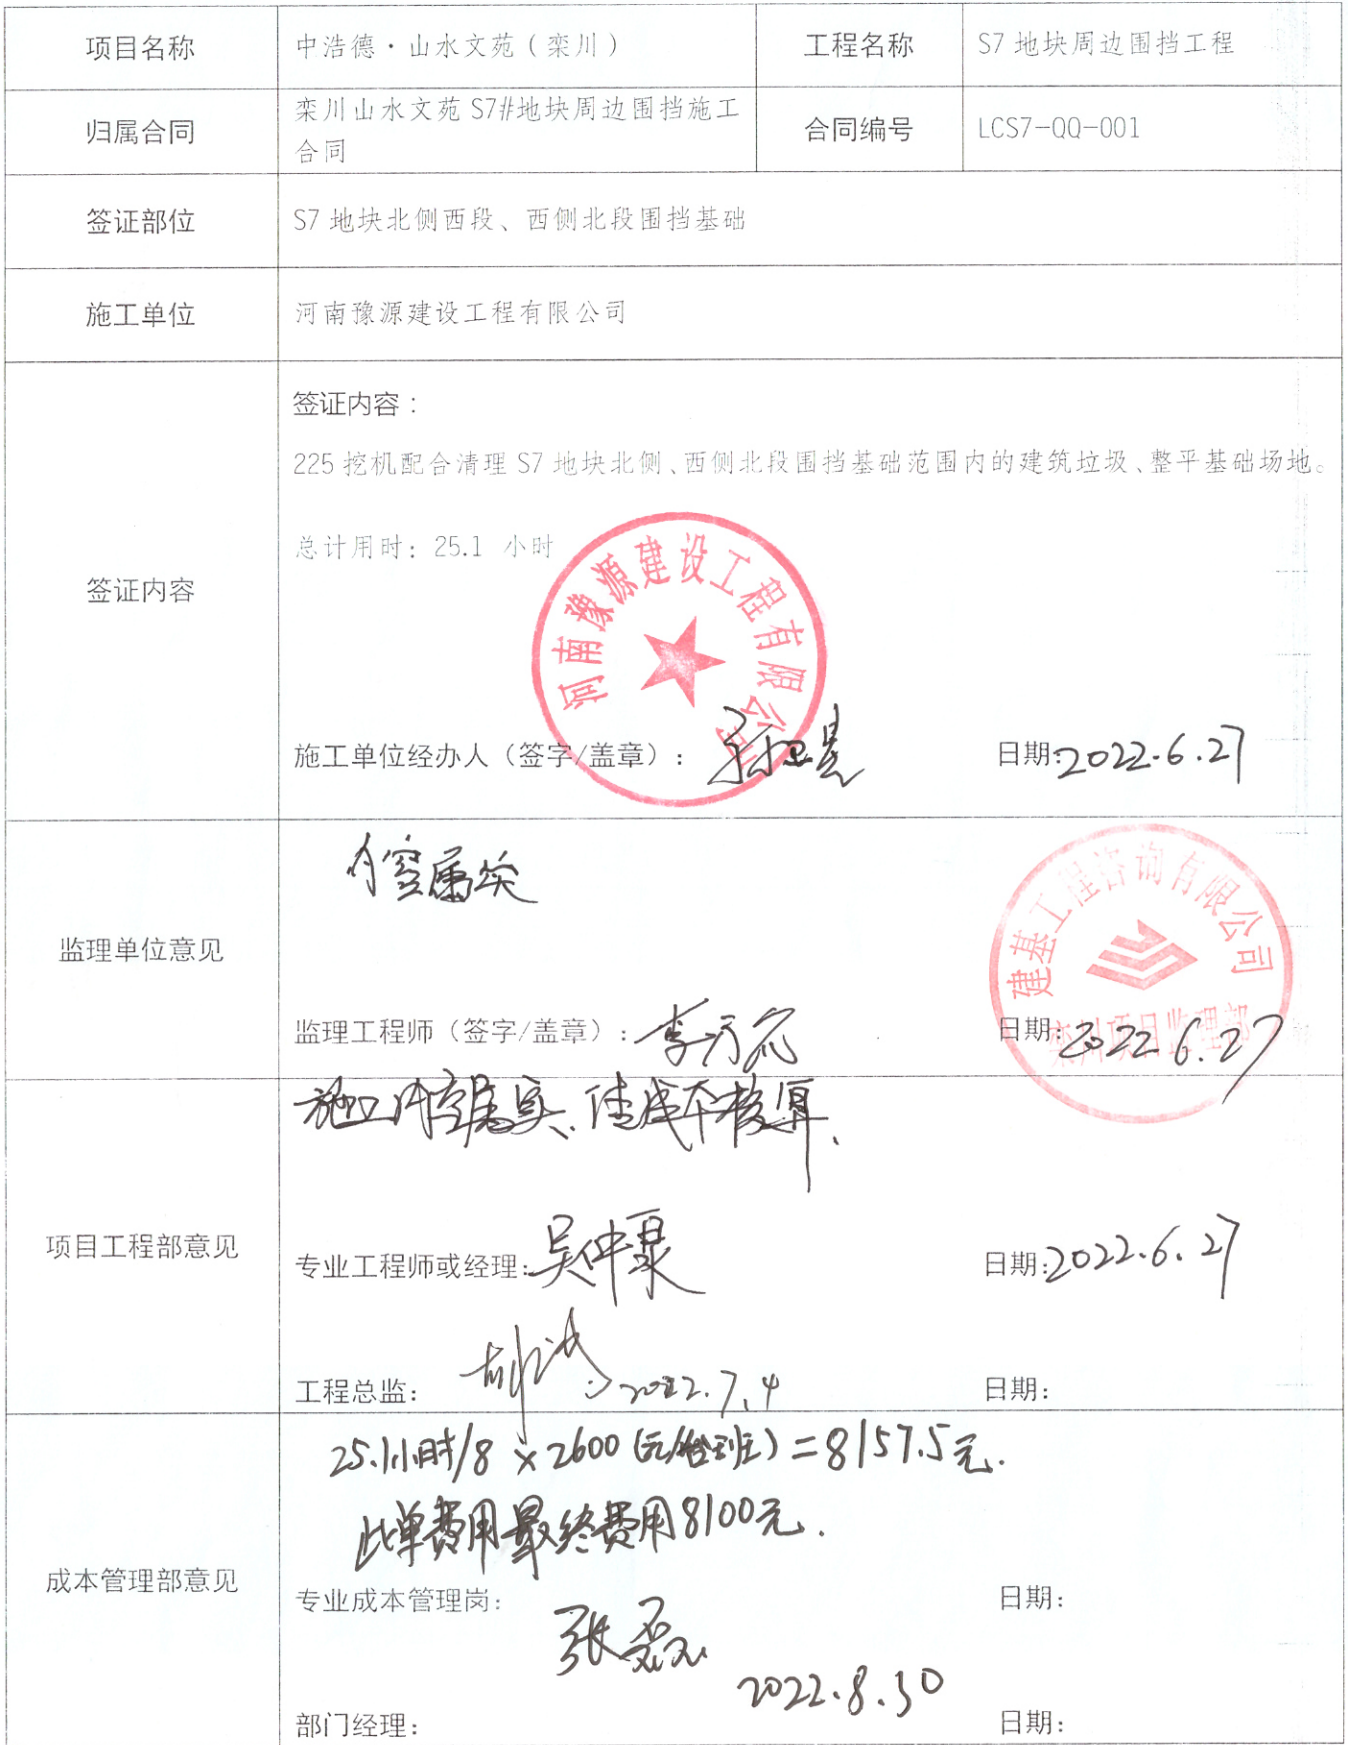 项目名称 中浩德·山水文苑（栾川） 工程名称 S7 地块周边围挡工程
归属合同 栾川山水文苑 S7#地块周边围挡施工
合同
合同编号 LCS7-QQ-001
签证部位 S7 地块北侧西段、西侧北段围挡基础
施工单位 河南豫源建设工程有限公司
签证内容
签证内容：
225 挖机配合清理 S7 地块北侧、西侧北段围挡基础范围内的建筑垃圾、整平基础场地。
总计用时：25.1 小时
河南豫源建设工程有限公司
施工单位经办人（签字/盖章）： 日期:2022.6.27
监理单位意见
属实
建基工程咨询有限公司
栾川项目监理部
监理工程师（签字/盖章）： 日期:2022.6.27
项目工程部意见
施工内容属实、佳成本核算、
专业工程师或经理: 吴仲 日期:2022.6.27
工程总监: 2022.7.4 日期:
成本管理部意见
25.1小时/8×2600(元/台班)=8157.5元.
此单费用最终费用8100元.
专业成本管理岗: 张磊 日期:
2022.8.30
部门经理: 日期: